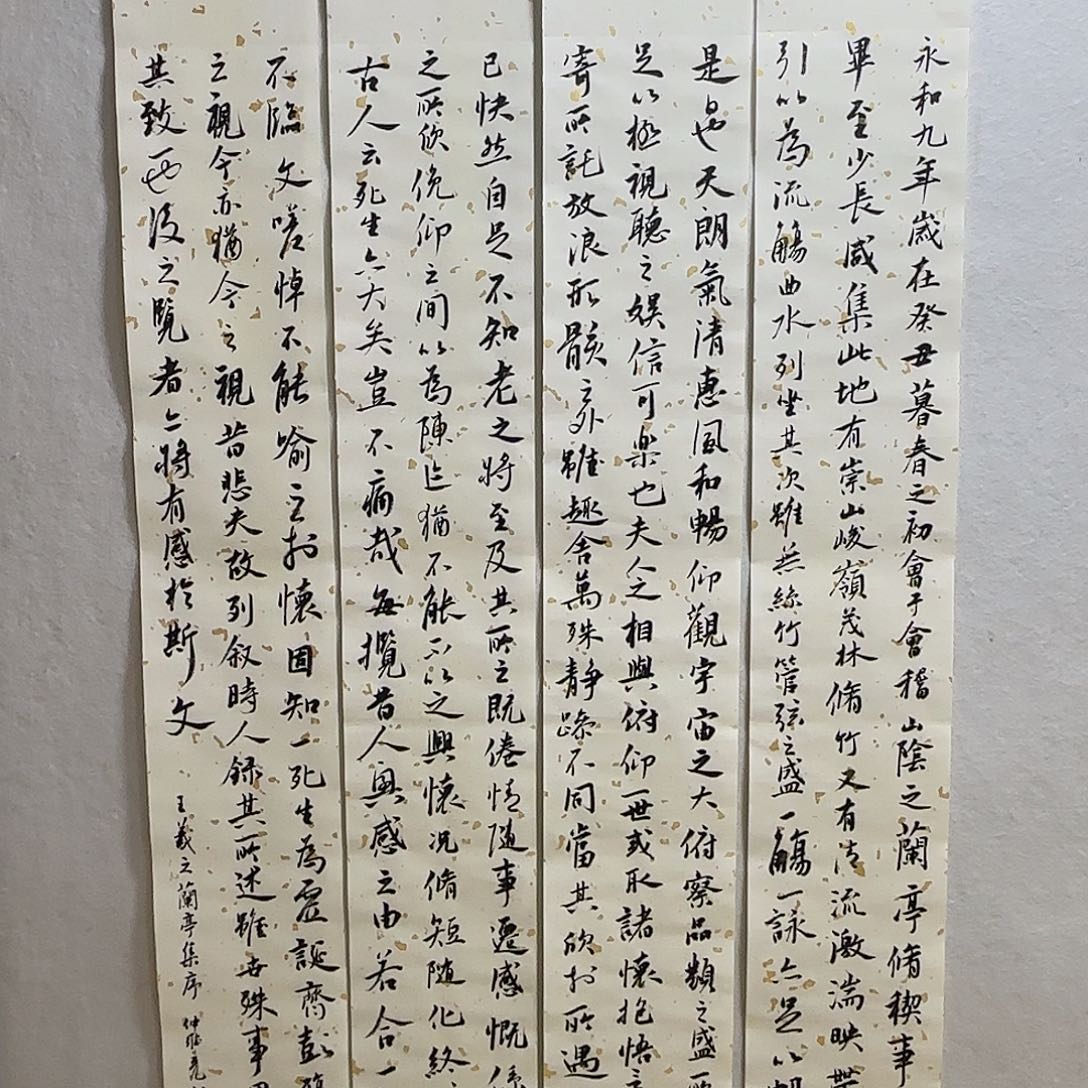 永和九年歲在癸丑暮春之初會于會稽山陰之蘭亭脩稧事
畢至少長咸集此地有崇山峻嶺茂林脩竹又有清流激湍映帶
引以為流觴曲水列坐其次雖無絲竹管弦之盛一觴一詠亦足以暢
是日也天朗氣清惠風和暢仰觀宇宙之大俯察品類之盛所
足以極視聽之娱信可樂也夫人之相與俯仰一世或取諸懷抱悟言
寄所託放浪形骸之外雖趣舍萬殊靜躁不同當其欣於所遇
已快然自足不知老之將至及其所之既倦情隨事遷感慨係
之所欣俛仰之間以為陳迹猶不能不以之興懷況脩短隨化終
古人云死生亦大矣豈不痛哉每攬昔人興感之由若合一
不臨文嗟悼不能喻之於懷固知一死生為虛誕齊彭殤
之視今亦猶今之視昔悲夫故列叙時人錄其所述雖世殊事異
其致一也後之覽者亦將有感於斯文
王羲之蘭亭集序